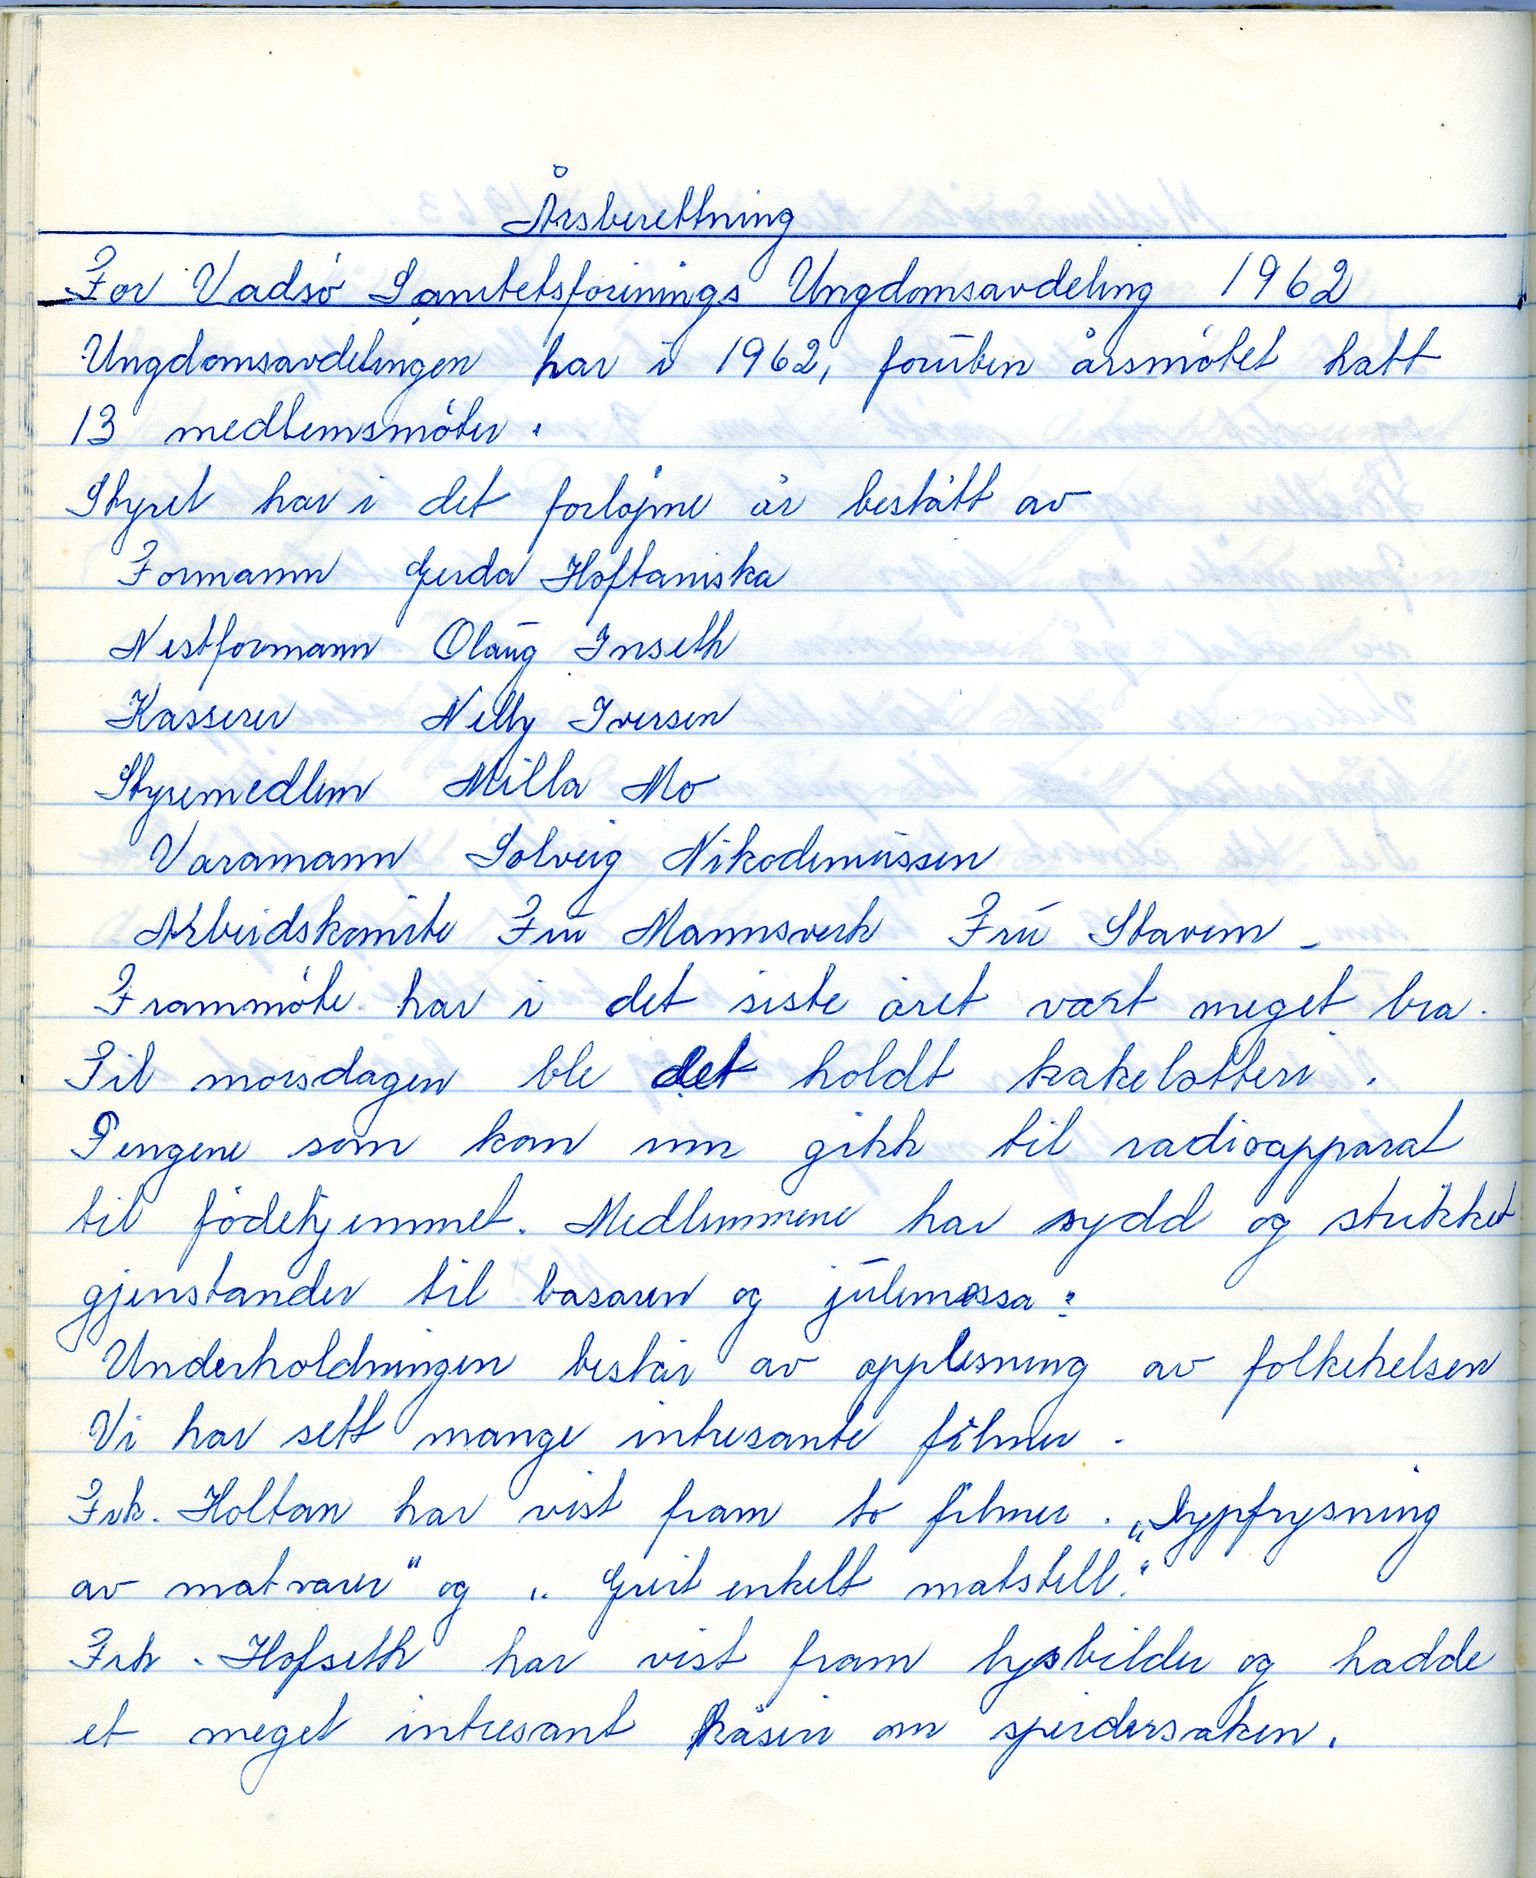 Årsberettning
For Vadsø Sanitetsforenings Ungdomsavdeling 1962
Ungdomsavdelingen har i 1962, foruten årsmøtet hatt
13 medlemsmøter.
Styret har i det forløpne år bestått av
Formann Gerda Hoftaniska
Nestformann Olaug Inseth
Kasserer Nelly Iversen
Styremedlem Milla Mo
Varamann Solveig Nikodemussen
Arbeidskomite Fru Mannsverk Fru Stavem -
Frammøte har i det siste året vært meget bra.
Til morsdagen ble det holdt kakelotteri.
Pengene som kom inn gikk til radioapparat
til fødehjemmet. Medlemmene har sydd og strikket
gjenstander til basaren og julemessa.
Underholdningen består av opplesning av folkehelsen
Vi har sett mange intresante filmer.
Frk. Holtan har vist fram to filmer. „Dypfrysning
av matvarer" og „Greit enkelt matstell."
Frk. Hofseth har vist fram lysbilder og hadde
et meget intresant kåseri om speidersaken.